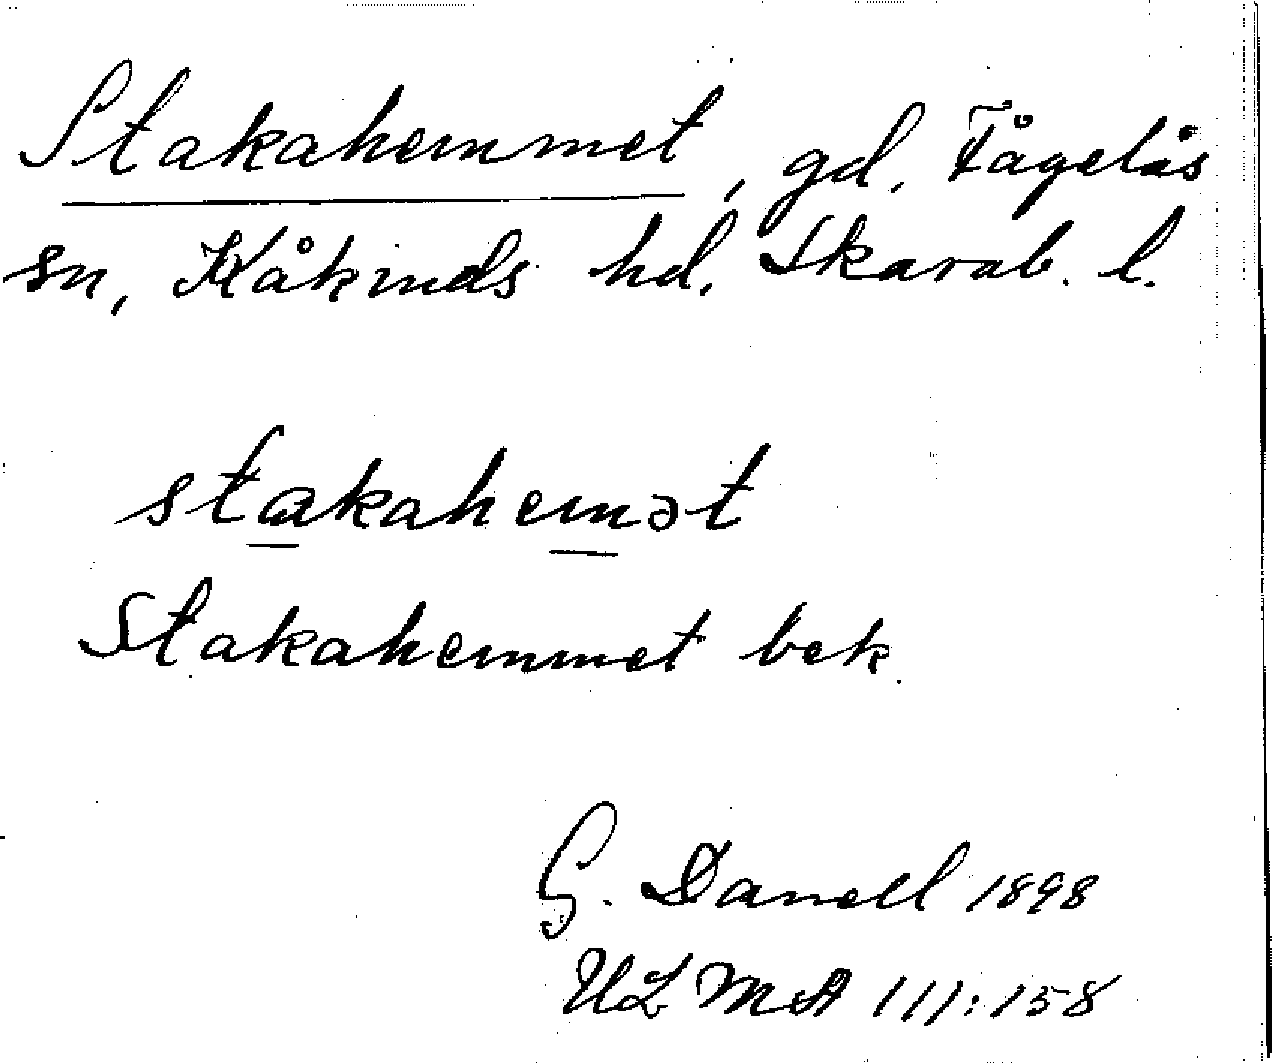 Stakahemmet, gd, Fågelås
sn, Kåkinds hd. Skarab. l.
stakahemət
Stakahemmet bek.
G. Danell 1898
ULMA 111:158